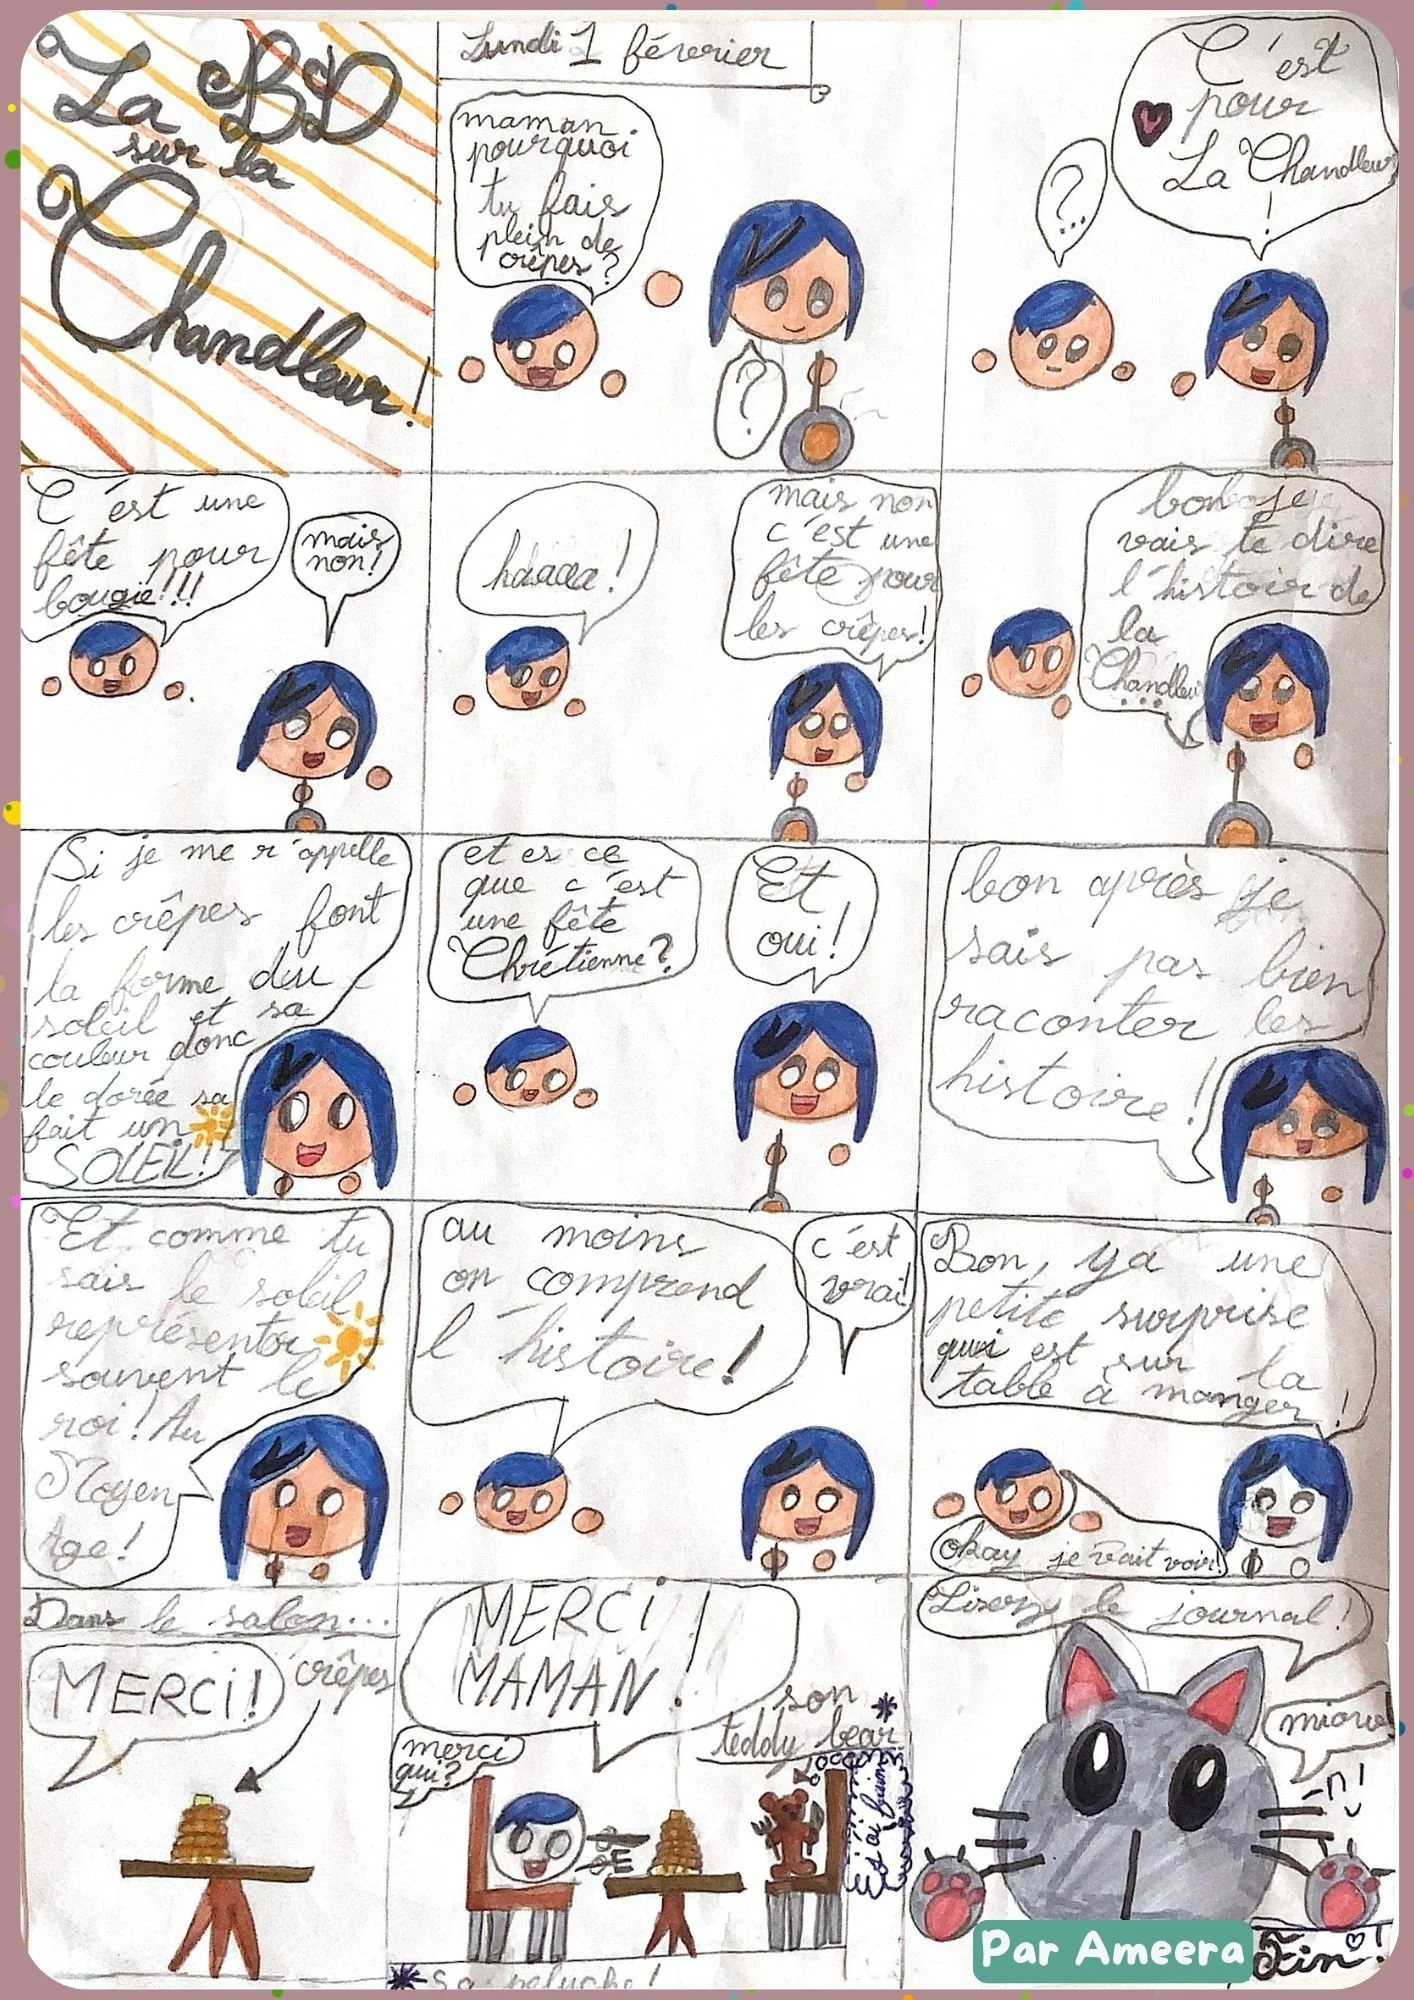 La BD
sur la
Chandleur!
Lundi 1 février
maman
pourquoi
tu fais
plein de
crêpes ?
?
?...
C'est
pour
La Chandleur
!
C'est une
fête pour
bougie!!!
mais
non!
haaaaa!
mais non
c'est une
fête pour
les crêpes!
bon je
vais te dire
l'histoir de
la
Chandleur
...
Si je me r'appelle
les crêpes font
la forme du
soleil et sa
couleur donc
le dorée sa
fait un
SOLEIL!
et es ce
que c'est
une fête
Chrétienne?
Et
oui!
bon après je
sais pas bien
raconter les
histoire!
Et comme tu
sais le soleil
représentor
souvent le
roi! Au
Moyen
Age!
au moins
on comprend
l'histoire!
c'est
vrai!
Bon, ya une
petite surprise
qui est sur la
table à manger!
okay je vait voir!
Dans le salon...
MERCi!
crêpes
MERCi
MAMAN!
merci
qui?
son
teddy bear
Et ai faim
sa peluche!
Lisez le journal!
miaou!
Par Ameera
Fin!